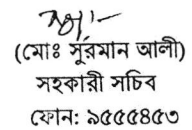 (মোঃ সুরমান আলী)
সহকারী সচিব
ফোন: ৯৫৫৫৪৫৩